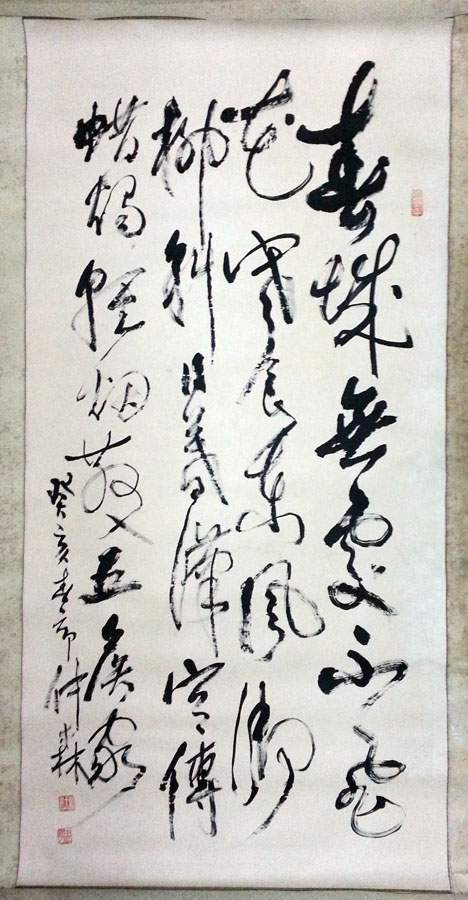 春城無處不飛
花寒食東風御
柳斜日暮漢宮傳
蜡燭輕烟散入五侯家
癸亥春節仲森